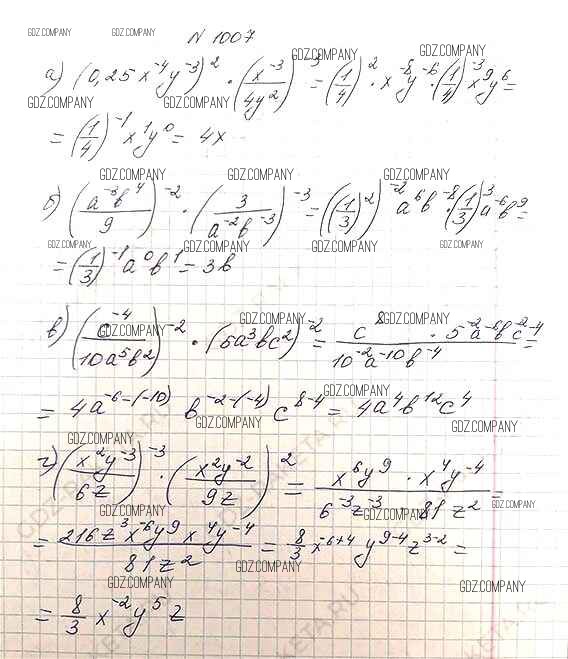 GDZ.COMPANY GDZ.COMPANY N 1007 GDZ.COMPANY GDZ.COMPANY
а) (0,25x⁻⁴y⁻³)² · (x⁻³/4y²)⁻³ = (1/4)² · x⁻⁸y⁻⁶ · (1/4)⁻³x⁹y⁶ =
GDZ.COMPANY GDZ.COMPANY GDZ.COMPANY
= (1/4)⁻¹ x¹y⁰ = 4x
GDZ.COMPANY GDZ.COMPANY GDZ.COMPANY
б) (a⁻³b⁴/9)⁻² · (3/a⁻²b⁻³)⁻³ = ((1/3)²)⁻² a⁶b⁻⁸ · (1/3)³a⁻⁶b⁹ =
GDZ.COMPANY GDZ.COMPANY GDZ.COMPANY
= (1/3)⁻¹ a⁰b¹ = 3b
GDZ.COMPANY GDZ.COMPANY GDZ.COMPANY
в) (c⁻⁴/10a⁵b²)⁻² · (5a³bc²)⁻² = c⁸ · 5⁻²a⁻⁶b⁻²c⁻⁴/10⁻²a⁻¹⁰b⁻⁴ =
= 4a⁻⁶⁻⁽⁻¹⁰⁾ b⁻²⁻⁽⁻⁴⁾ c⁸⁻⁴ = 4a⁴b¹²c⁴
GDZ.COMPANY GDZ.COMPANY GDZ.COMPANY
г) (x²y⁻³/6z)⁻³ · (x²y⁻²/9z)² = x⁻⁶y⁹ · x⁴y⁻⁴/6⁻³z⁻³ · 81z² =
GDZ.COMPANY GDZ.COMPANY GDZ.COMPANY
= 216z³x⁻⁶y⁹x⁴y⁻⁴/81z² = 8/3 x⁻⁶⁺⁴ y⁹⁻⁴z³⁻² =
GDZ.COMPANY GDZ.COMPANY GDZ.COMPANY
= 8/3 x⁻²y⁵z